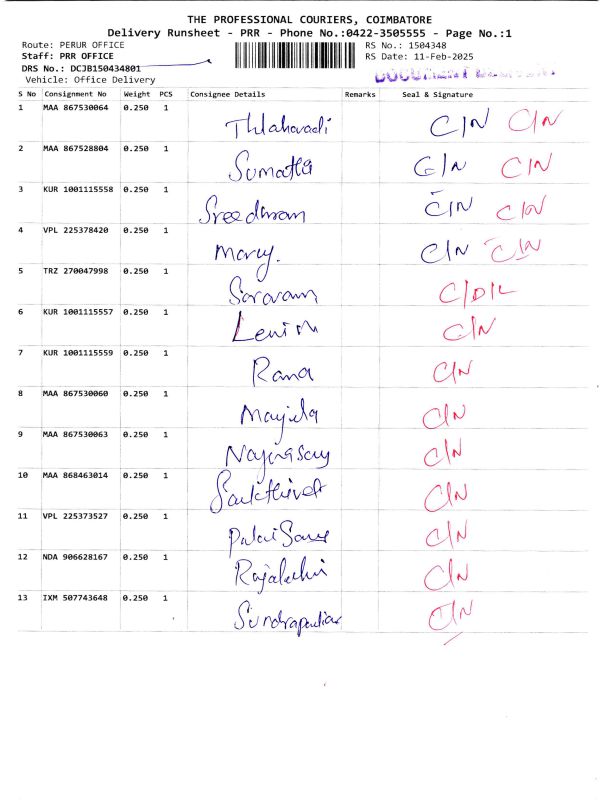 THE PROFESSIONAL COURIERS, COIMBATORE
Delivery Runsheet - PRR - Phone No.:0422-3505555 - Page No.:1
Route: PERUR OFFICE RS No.: 1504348
Staff: PRR OFFICE RS Date: 11-Feb-2025
DRS No.: DCJB150434801
Vehicle: Office Delivery
S No Consignment No Weight PCS Consignee Details Remarks Seal & Signature
1 MAA 867530064 0.250 1 C/N C/N
2 MAA 867528804 0.250 1 C/N C/N
3 KUR 1001115558 0.250 1 Sreedharan C/N C/N
4 VPL 225378420 0.250 1 Marcy. C/N C/N
5 TRZ 270047998 0.250 1 C/D/L
6 KUR 1001115557 0.250 1 Lenin C/N
7 KUR 1001115559 0.250 1 Rana C/N
8 MAA 867530060 0.250 1 C/N
9 MAA 867530063 0.250 1 C/N
10 MAA 868463014 0.250 1 C/N
11 VPL 225373527 0.250 1 C/N
12 NDA 906628167 0.250 1 C/N
13 IXM 507743648 0.250 1 C/N